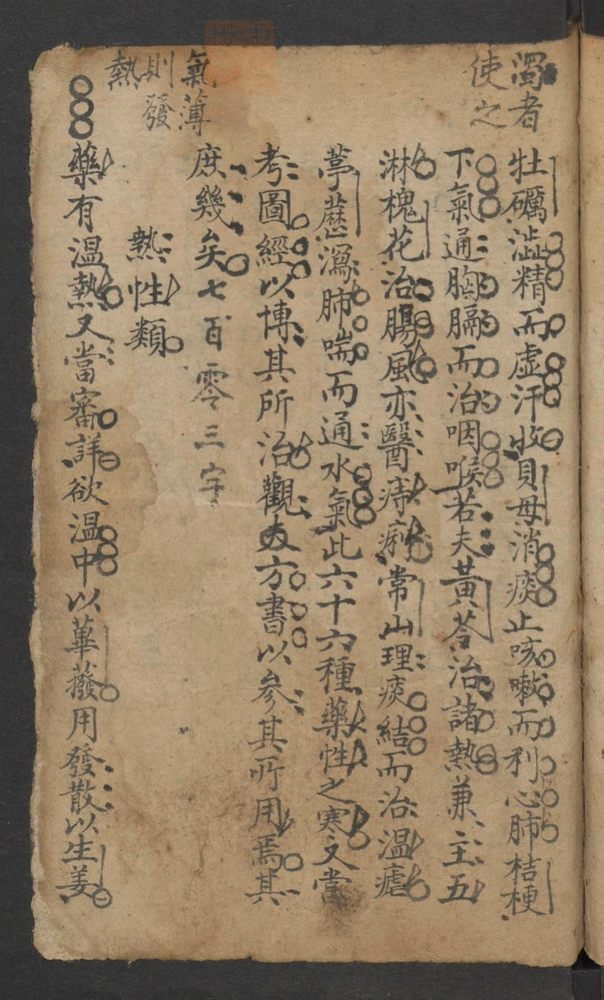 濁者
使之
牡礪澁精而虛汗收貝母消痰止咳嗽而利心肺桔梗
下氣通胸膈而治咽喉若夫黃芩治諸熱兼主五
淋槐花治腸風亦醫痔痢常山理痰結而治温瘧
葶藶瀉肺喘而通水氣此六十六種藥性之寒又當
考圖經以博其所治觀夫方書以參其所用焉其
氣薄
則發
熱
庶幾矣七百零三字
熱性類
藥有温熱又當審詳欲温中以蓽撥用發散以生姜